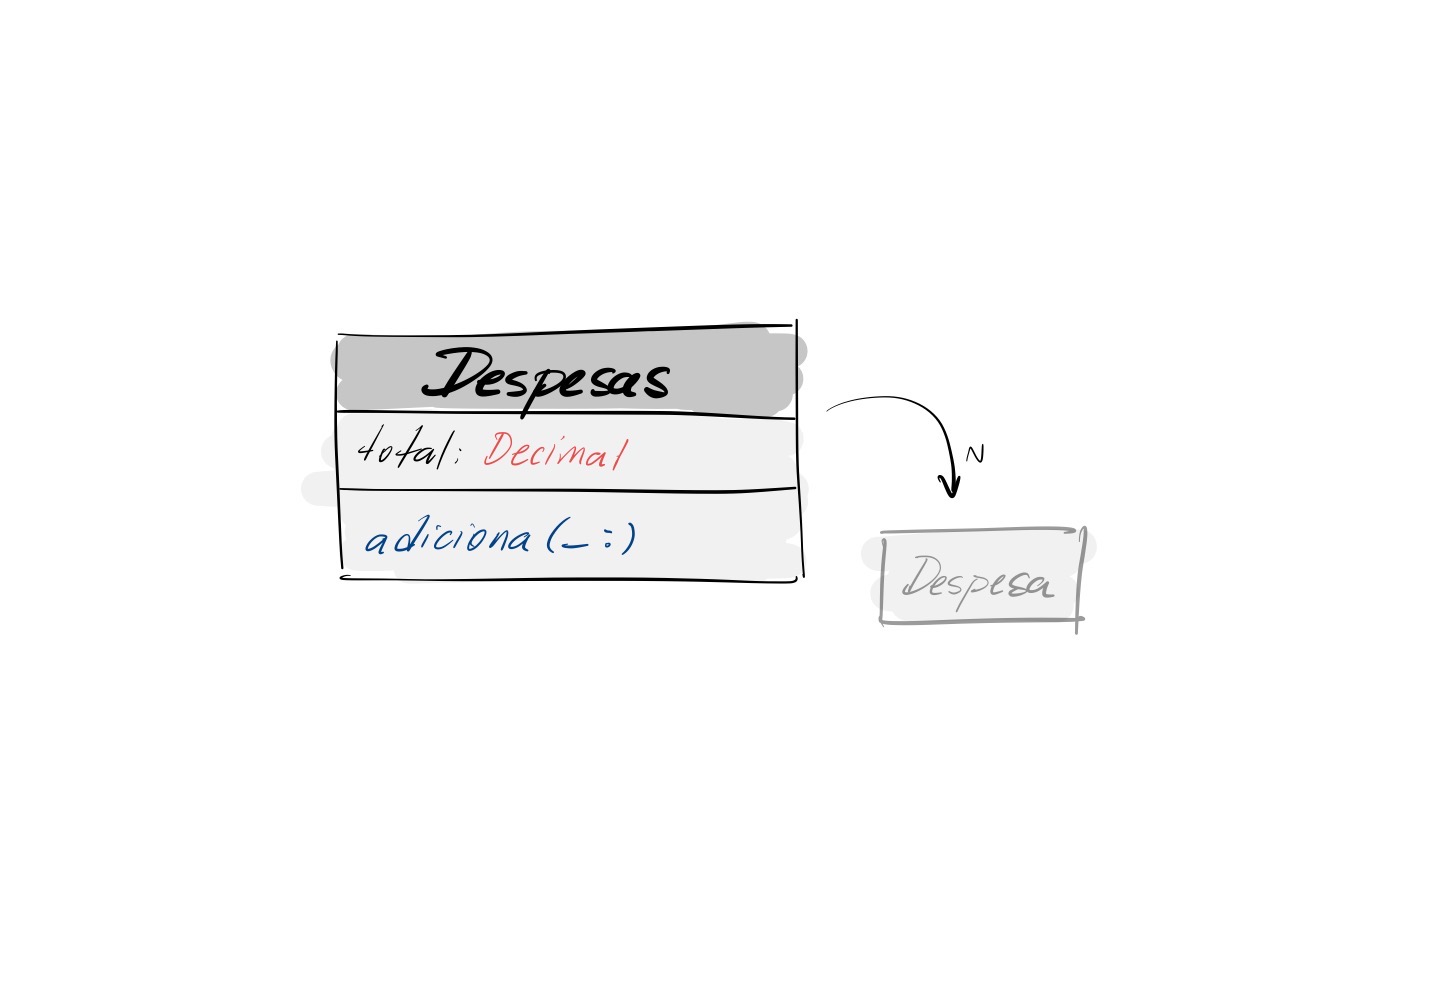 Despesas
total: Decimal
adiciona(_:)
N
Despesa